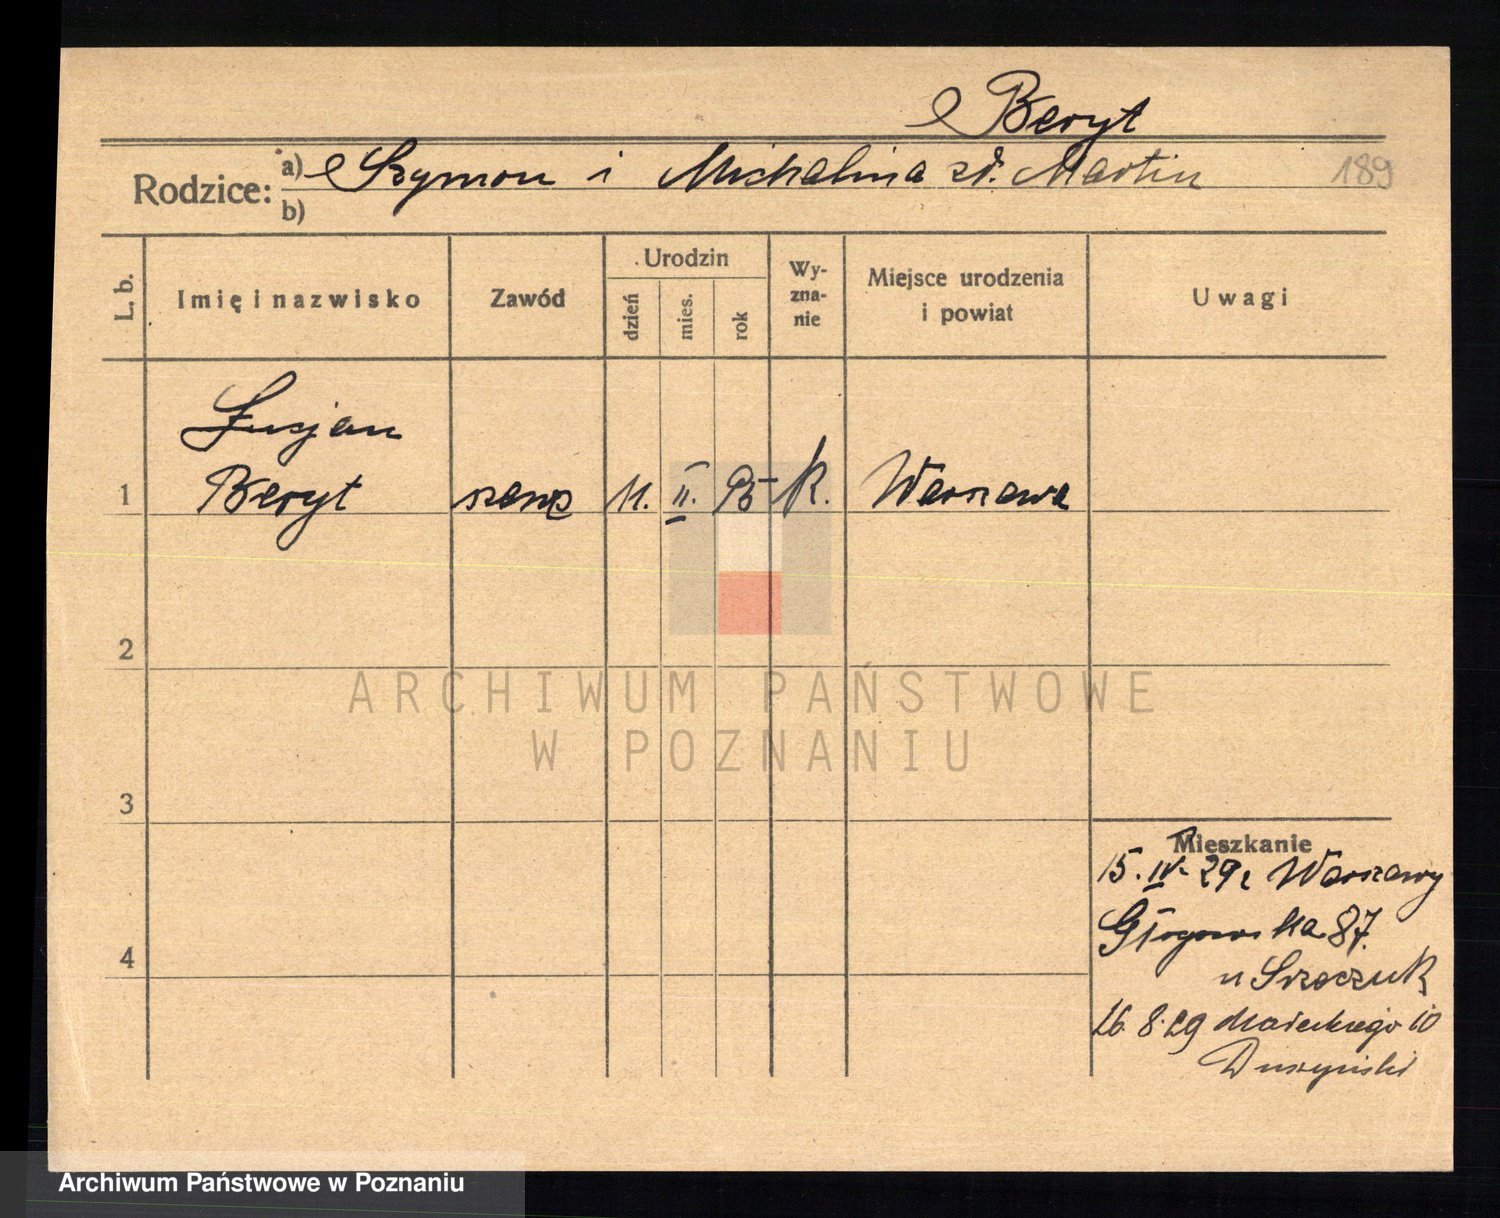 Beryt
Rodzice: a) Szymon i Michalina zd. Martin 189
b)
L. b.
Imię i nazwisko
Zawód
Urodzin
dzień
mies.
rok
Wy-
zna-
nie
Miejsce urodzenia
i powiat
Uwagi
Lucjan
1 Beryt szewc 11. II. 95 K. Warszawa
2
ARCHIWUM PAŃSTWOWE
W POZNANIU
3
Mieszkanie
15. IV. 29 z Warszawy
Głogowska 87.
4
u
26. 8. 29 Małeckiego 10
Duszyński
Archiwum Państwowe w Poznaniu